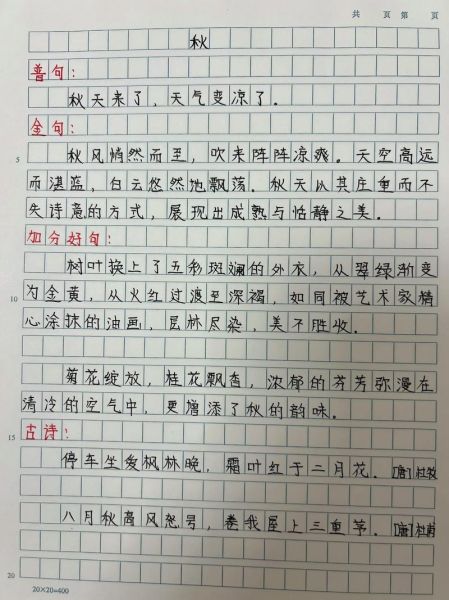 共 页 第 页
秋
普句：
秋天来了，天气变凉了。
金句：
5 秋风悄然而至，吹来阵阵凉爽。天空高远
而湛蓝，白云悠然地飘荡。秋天以其庄重而不
失诗意的方式，展现出成熟与恬静之美。
加分好句：
树叶换上了五彩斑斓的外衣，从翠绿渐变
10 为金黄，从火红过渡至深褐，如同被艺术家精
心涂抹的油画，层林尽染，美不胜收。
菊花绽放，桂花飘香，浓郁的芬芳弥漫在
清冷的空气中，更增添了秋的韵味。
15 古诗：
停车坐爱枫林晚，霜叶红于二月花。[唐]杜牧
八月秋高风怒号，卷我屋上三重茅。[唐]杜甫
20
20×20=400